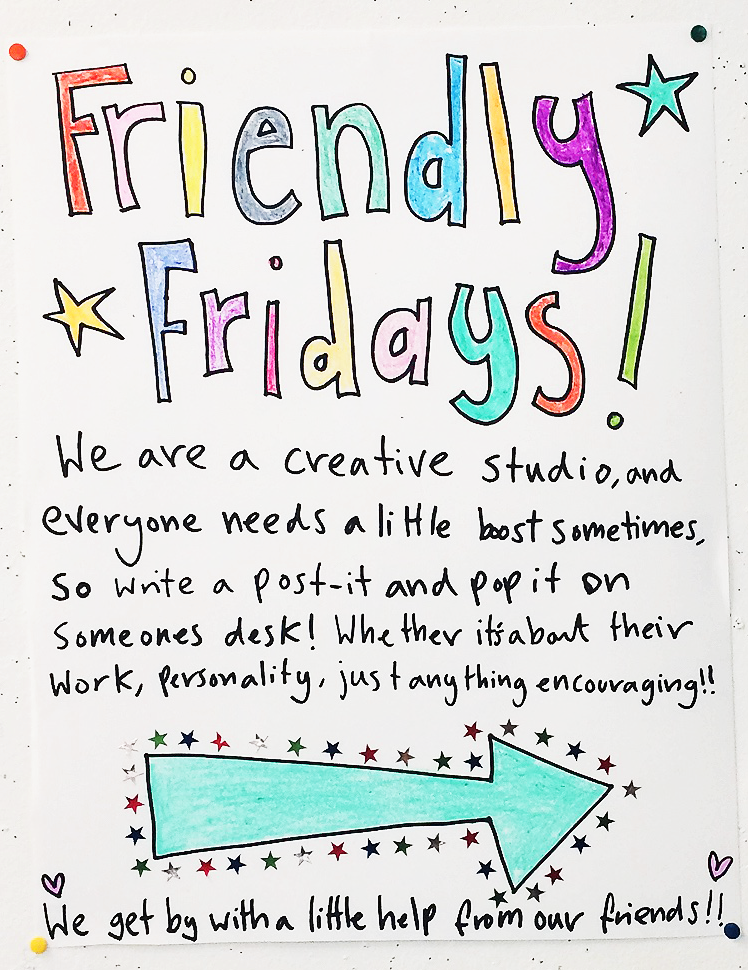 Friendly
Fridays!
We are a creative studio, and
everyone needs a little boost sometimes,
so write a post-it and pop it on
someones desk! Whether it's about their
work, personality, just anything encouraging!!
We get by with a little help from our friends!!